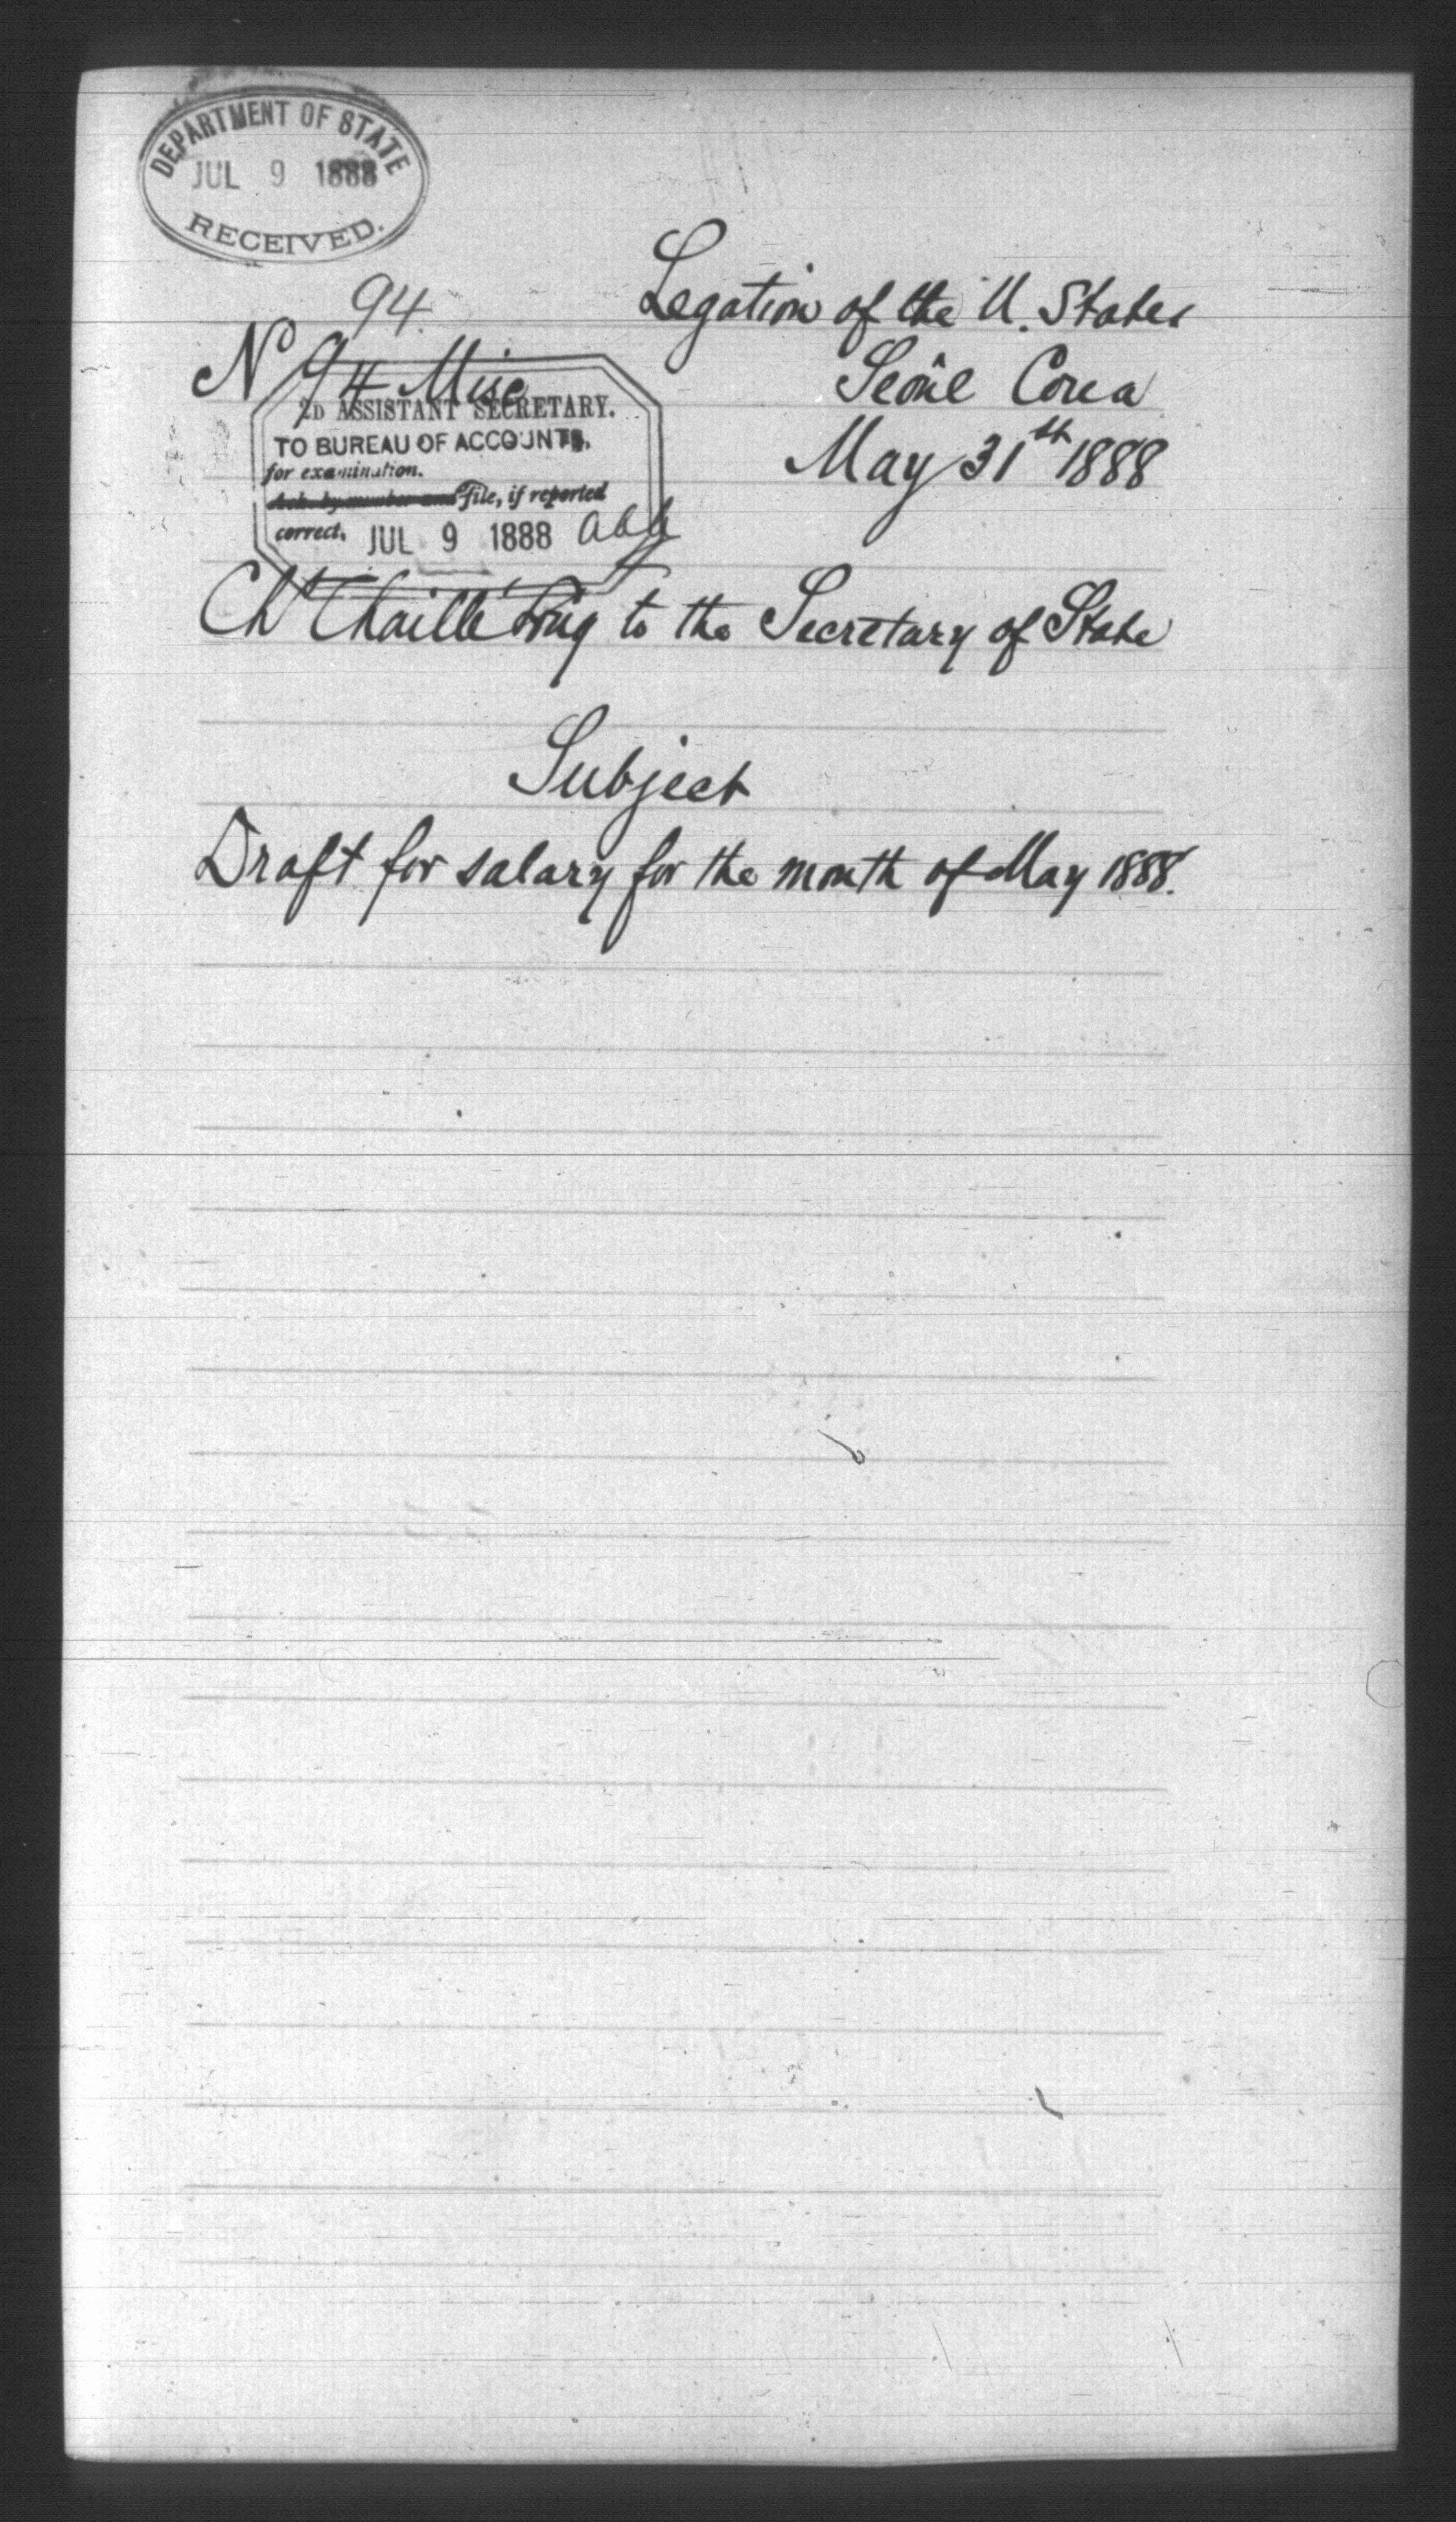 DEPARTMENT OF STATE
JUL 9 1888
RECEIVED.
94
Legation of the U. States
Nº 94 Misc
Seoul Corea
May 31st 1888
2D ASSISTANT SECRETARY.
TO BUREAU OF ACCOUNTS,
for examination.
file, if reported
correct. JUL 9 1888
Ch Chaillé Long to the Secretary of State
Subject
Draft for salary for the month of May 1888.